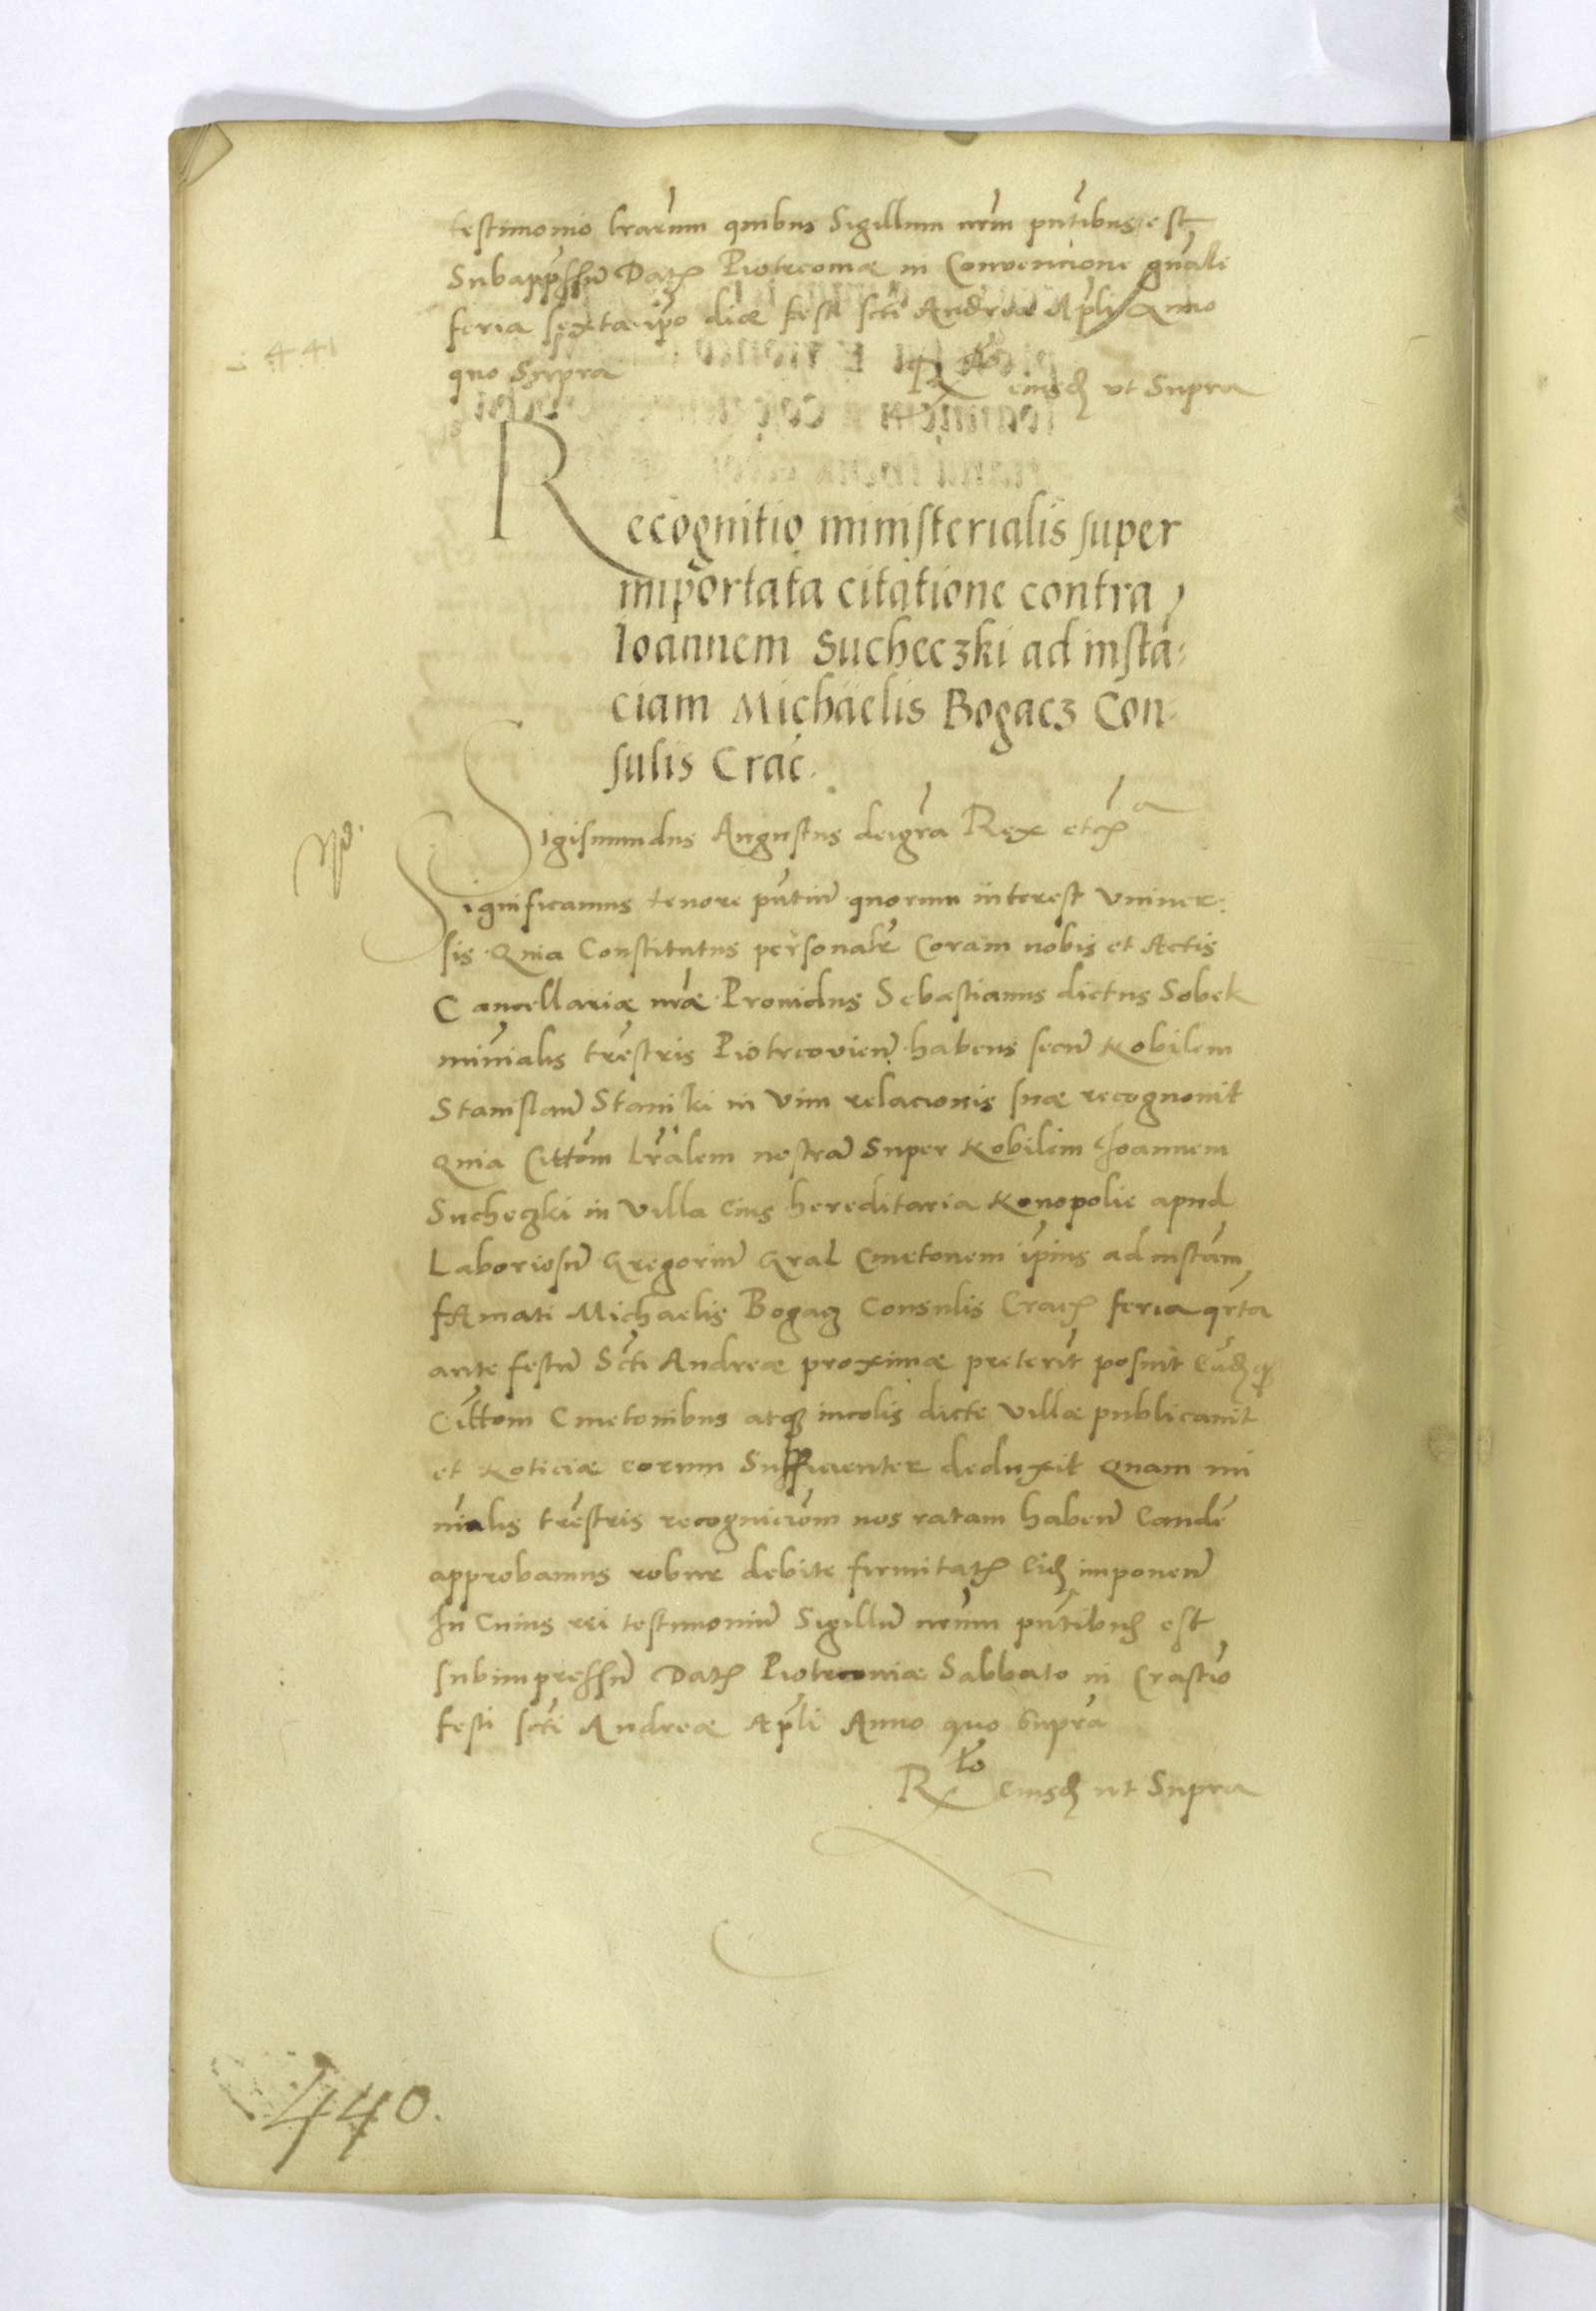 testimonio lrarum quibus Sigillum nrm pntibus est
Subappssu Dat Piotrcoviæ in Convencione gnali
441
feria sexta ipo die festi scti Andreæ Apli Anno
quo Supra
Rlo eiusd vt Supra
Recognitio ministerialis super
importata citatione contra
Ioannem Sucheczki ad insta:
ciam Michaelis Bogacz Con:
sulis Crac.
Sigismundus Augustus dei gra Rex etc
Significamus tenore pntiu quorum interest Vniver:
sis. Quia Constitutus personalr Coram nobis et Actis
Cancellariæ nræ Prouidus Sebastianus dictus Sobek
minialis trestris Piotrcovien habens secu Nobilem
Stanislau Staniki in Vim relacionis suæ recognouit
Quia Cittom lralem nostra Super Nobilem Ioannem
Sucheczki in Villa eius hereditaria Konopolie apud
Laboriosu Gregoriu Gral Cmetonem ipius ad instam
fAmati Michaelis Bogacz Consulis Crac feria qrta
ante festu Scti Andreæ proximæ preterit posuit Eudq
Cittom Cmetonibus atq incolis dicte Villæ publicauit
et Noticiæ eorum Sufficienter deduxit Quam mi
nialis trestris recogniciom nos ratam haben Eande
approbamus robur debite firmitat Eid imponen
In Cuius rei testimoniu Sigillu nrum pntibus est
subimpressu Dat Piotrcoviæ Sabbato in Crastio
festi scti Andreæ Apli Anno quo Supra
Rlo Eiusd ut Supra
440.